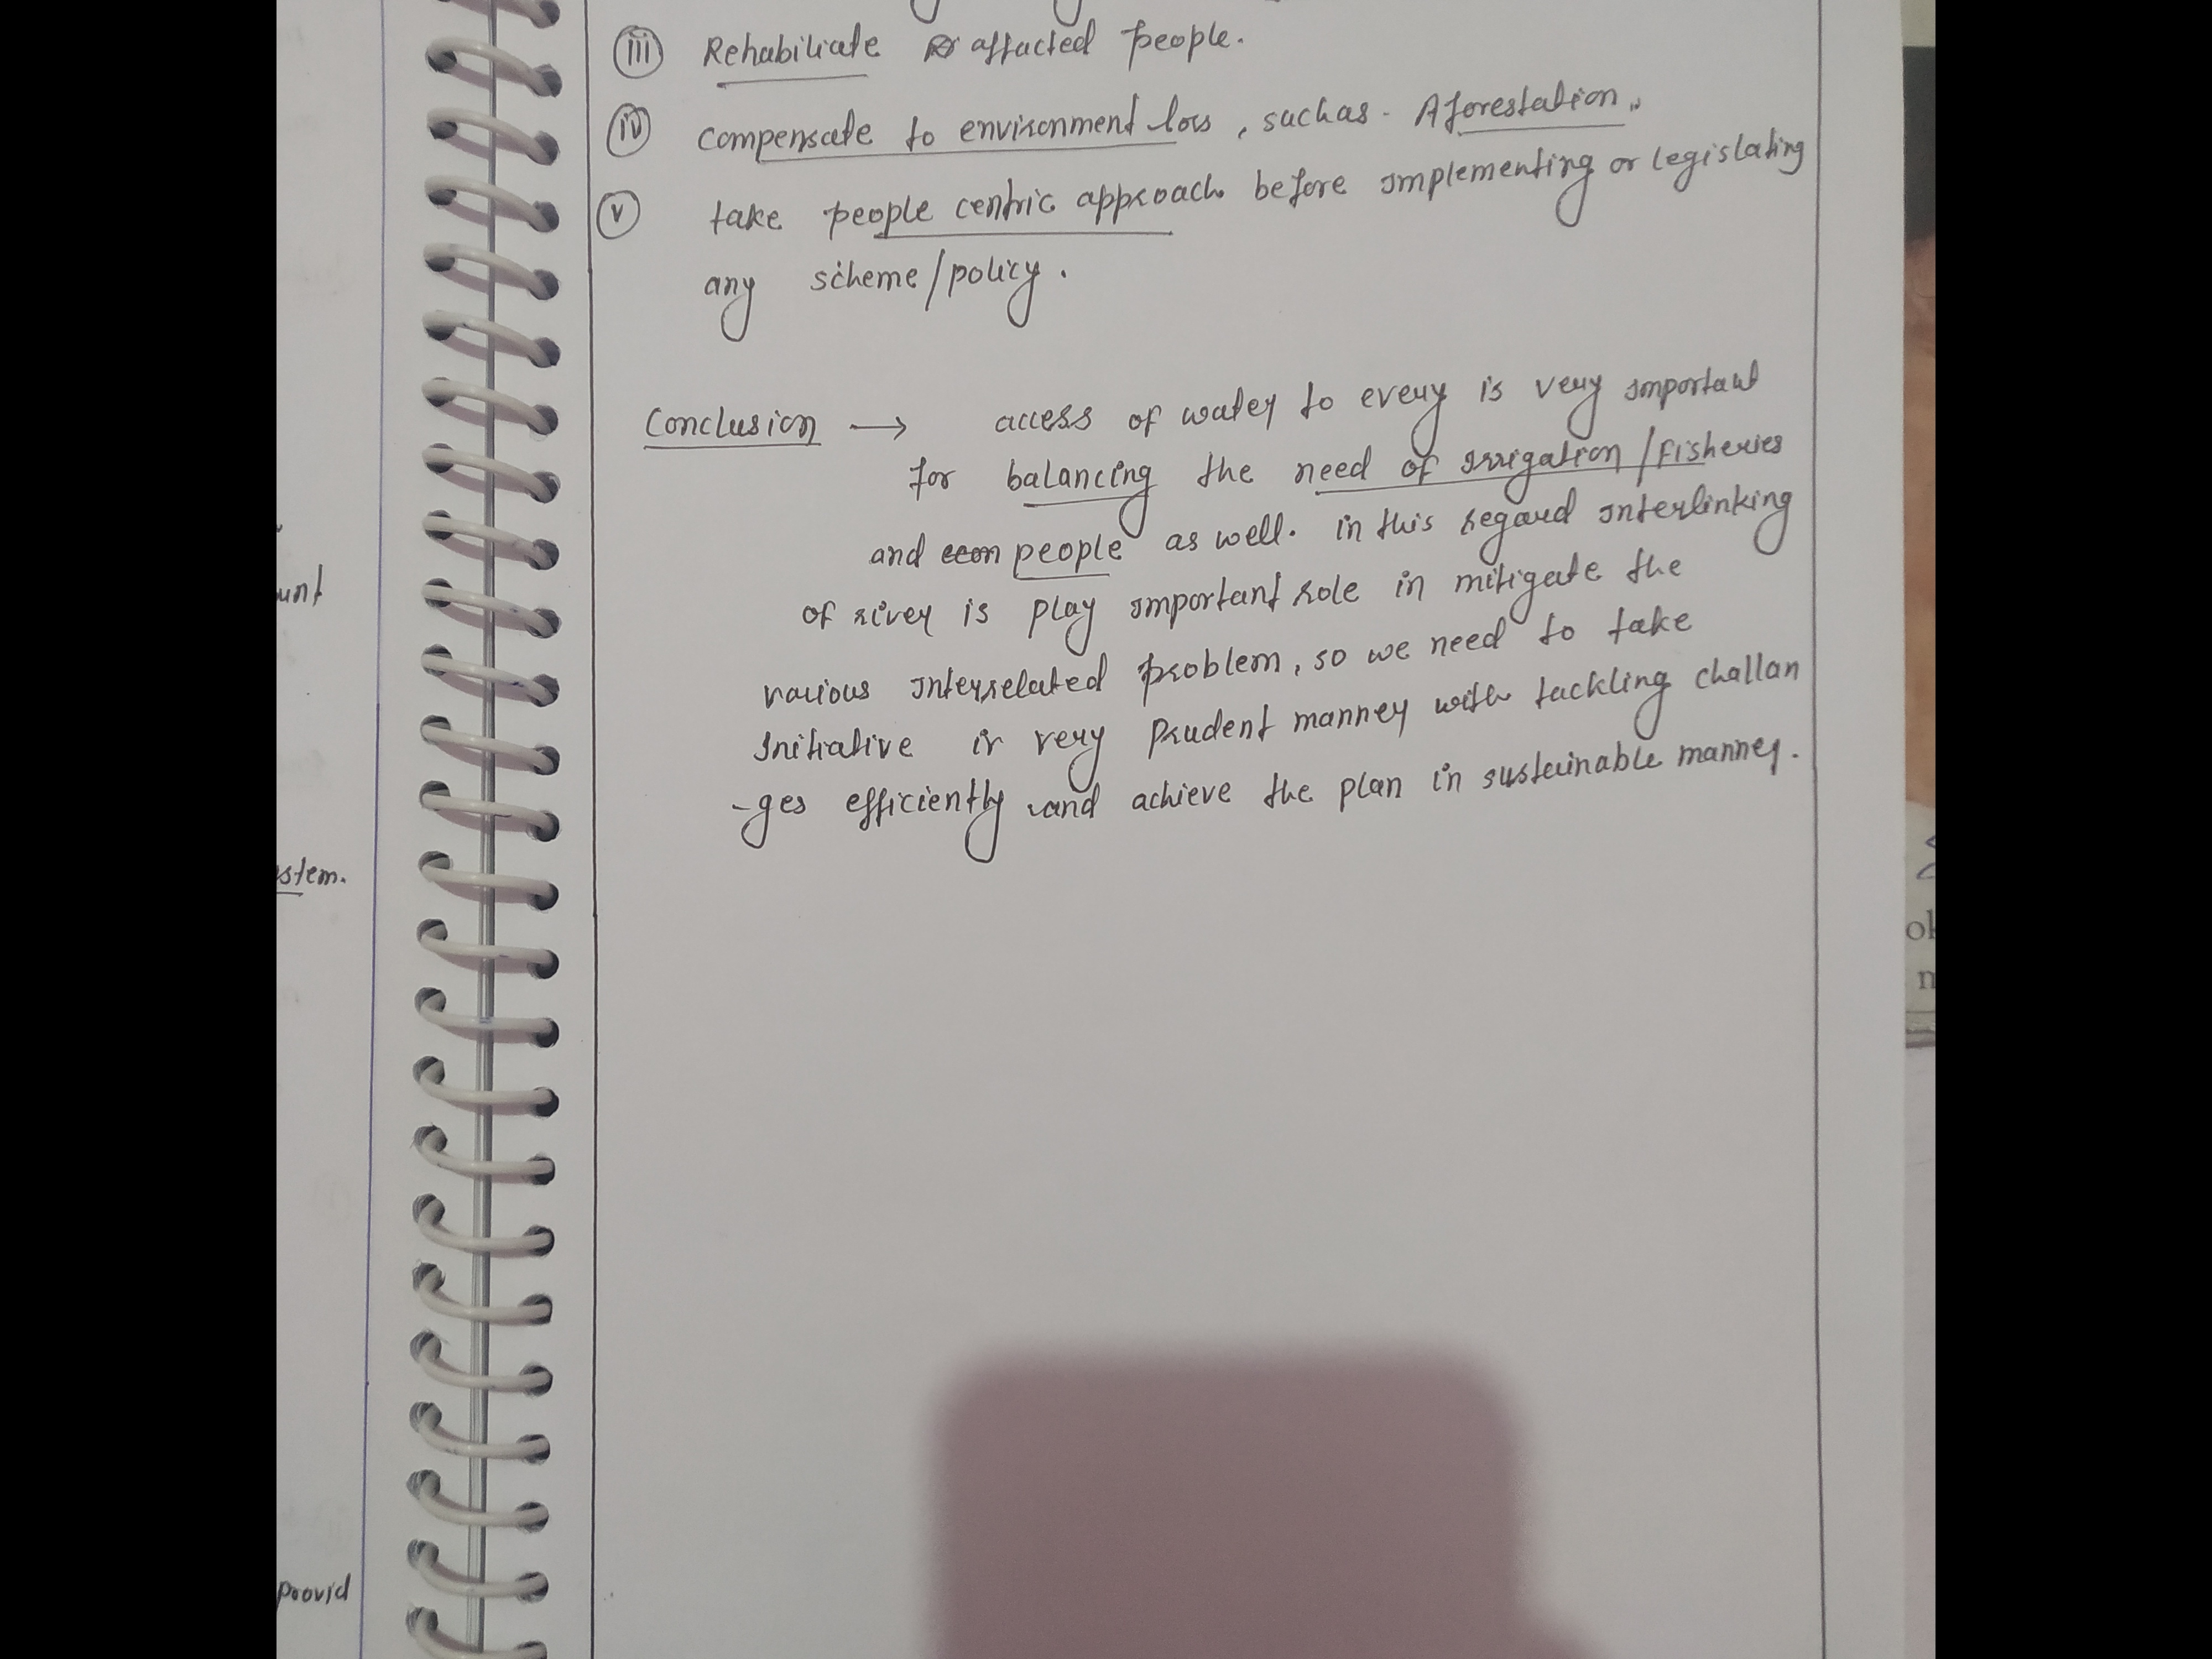 (iii) Rehabiliate affacted people.
(iv) compensate to environment loss, such as - Aforestation.
(v) take people centric approach before implementing or legislating
any scheme/policy.
Conclusion → access of water to every is very important
for balancing the need of irrigation/fisheries
and people as well. in this regard interlinking
of river is play important role in mitigate the
various interrelated problem, so we need to take
initiative in very prudent manner with tackling challan
-ges efficiently and achieve the plan in sustainable manner.
unt
stem.
proovid
ok
n